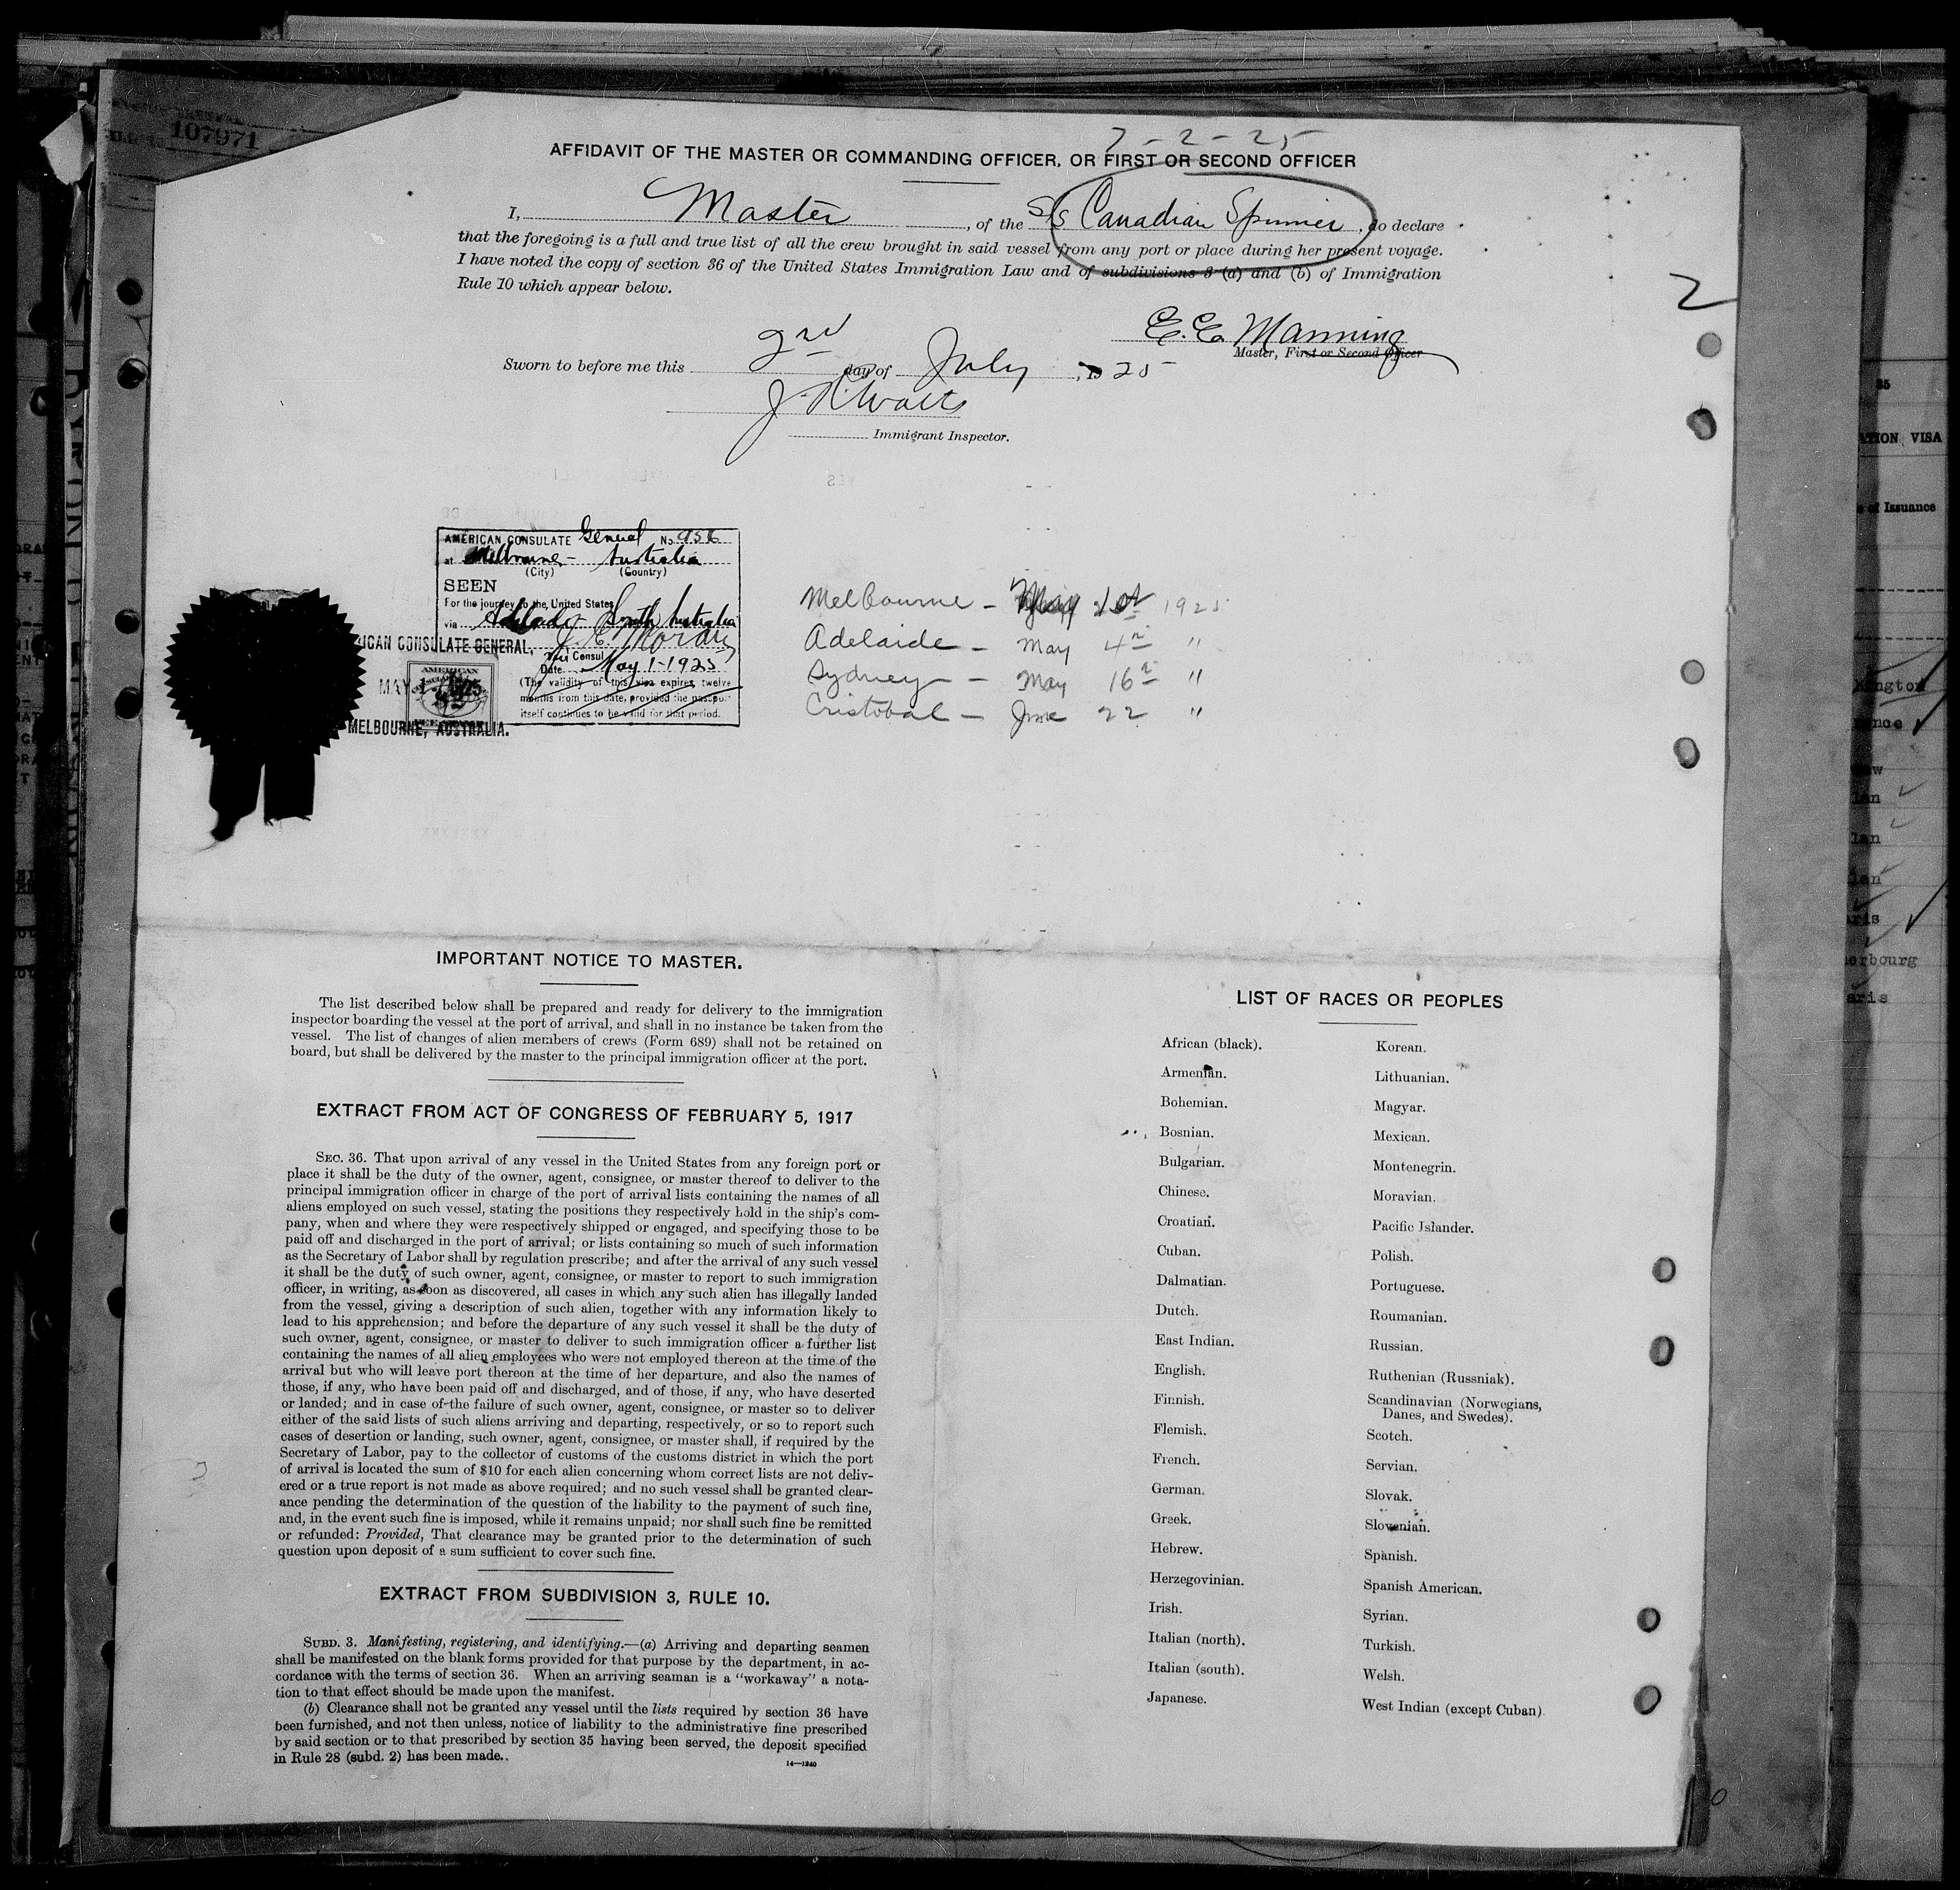 107971
7-2-25
AFFIDAVIT OF THE MASTER OR COMMANDING OFFICER, OR FIRST OR SECOND OFFICER
I, Master, of the S/S Canadian Spinner, do declare
that the foregoing is a full and true list of all the crew brought in said vessel from any port or place during her present voyage.
I have noted the copy of section 36 of the United States Immigration Law and of subdivisions 3 (a) and (b) of Immigration
Rule 10 which appear below.
2
E. E. Manning
Master, First or Second Officer
Sworn to before me this 2nd day of July, 1925
Immigrant Inspector.
AMERICAN CONSULATE General No. 956
at Melbourne - Australia
(City) (Country)
SEEN
For the journey to the United States
via Adelaide South Australia
AMERICAN CONSULATE GENERAL,
Vice Consul
Date May 1-1925
(The validity of this visa expires twelve
months from this date, provided the passport
itself continues to be valid for that period.
AMERICAN
MAY 1 1925
MELBOURNE, AUSTRALIA.
Melbourne - May 1st 1925
Adelaide - May 4th "
Sydney - May 16th "
Cristobal - June 22 "
IMPORTANT NOTICE TO MASTER.
The list described below shall be prepared and ready for delivery to the immigration
inspector boarding the vessel at the port of arrival, and shall in no instance be taken from the
vessel. The list of changes of alien members of crews (Form 689) shall not be retained on
board, but shall be delivered by the master to the principal immigration officer at the port.
EXTRACT FROM ACT OF CONGRESS OF FEBRUARY 5, 1917
SEC. 36. That upon arrival of any vessel in the United States from any foreign port or
place it shall be the duty of the owner, agent, consignee, or master thereof to deliver to the
principal immigration officer in charge of the port of arrival lists containing the names of all
aliens employed on such vessel, stating the positions they respectively hold in the ship's com-
pany, when and where they were respectively shipped or engaged, and specifying those to be
paid off and discharged in the port of arrival; or lists containing so much of such information
as the Secretary of Labor shall by regulation prescribe; and after the arrival of any such vessel
it shall be the duty of such owner, agent, consignee, or master to report to such immigration
officer, in writing, as soon as discovered, all cases in which any such alien has illegally landed
from the vessel, giving a description of such alien, together with any information likely to
lead to his apprehension; and before the departure of any such vessel it shall be the duty of
such owner, agent, consignee, or master to deliver to such immigration officer a further list
containing the names of all alien employees who were not employed thereon at the time of the
arrival but who will leave port thereon at the time of her departure, and also the names of
those, if any, who have been paid off and discharged, and of those, if any, who have deserted
or landed; and in case of the failure of such owner, agent, consignee, or master so to deliver
either of the said lists of such aliens arriving and departing, respectively, or so to report such
cases of desertion or landing, such owner, agent, consignee, or master shall, if required by the
Secretary of Labor, pay to the collector of customs of the customs district in which the port
of arrival is located the sum of $10 for each alien concerning whom correct lists are not deliv-
ered or a true report is not made as above required; and no such vessel shall be granted clear-
ance pending the determination of the question of the liability to the payment of such fine,
and, in the event such fine is imposed, while it remains unpaid; nor shall such fine be remitted
or refunded: Provided, That clearance may be granted prior to the determination of such
question upon deposit of a sum sufficient to cover such fine.
EXTRACT FROM SUBDIVISION 3, RULE 10.
SUBD. 3. Manifesting, registering, and identifying.—(a) Arriving and departing seamen
shall be manifested on the blank forms provided for that purpose by the department, in ac-
cordance with the terms of section 36. When an arriving seaman is a "workaway" a nota-
tion to that effect should be made upon the manifest.
(b) Clearance shall not be granted any vessel until the lists required by section 36 have
been furnished, and not then unless, notice of liability to the administrative fine prescribed
by said section or to that prescribed by section 35 having been served, the deposit specified
in Rule 28 (subd. 2) has been made.
14—1240
LIST OF RACES OR PEOPLES
African (black).
Armenian.
Bohemian.
Bosnian.
Bulgarian.
Chinese.
Croatian.
Cuban.
Dalmatian.
Dutch.
East Indian.
English.
Finnish.
Flemish.
French.
German.
Greek.
Hebrew.
Herzegovinian.
Irish.
Italian (north).
Italian (south).
Japanese.
Korean.
Lithuanian.
Magyar.
Mexican.
Montenegrin.
Moravian.
Pacific Islander.
Polish.
Portuguese.
Roumanian.
Russian.
Ruthenian (Russniak).
Scandinavian (Norwegians,
Danes, and Swedes).
Scotch.
Servian.
Slovak.
Slovenian.
Spanish.
Spanish American.
Syrian.
Turkish.
Welsh.
West Indian (except Cuban)
VISA
of Issuance